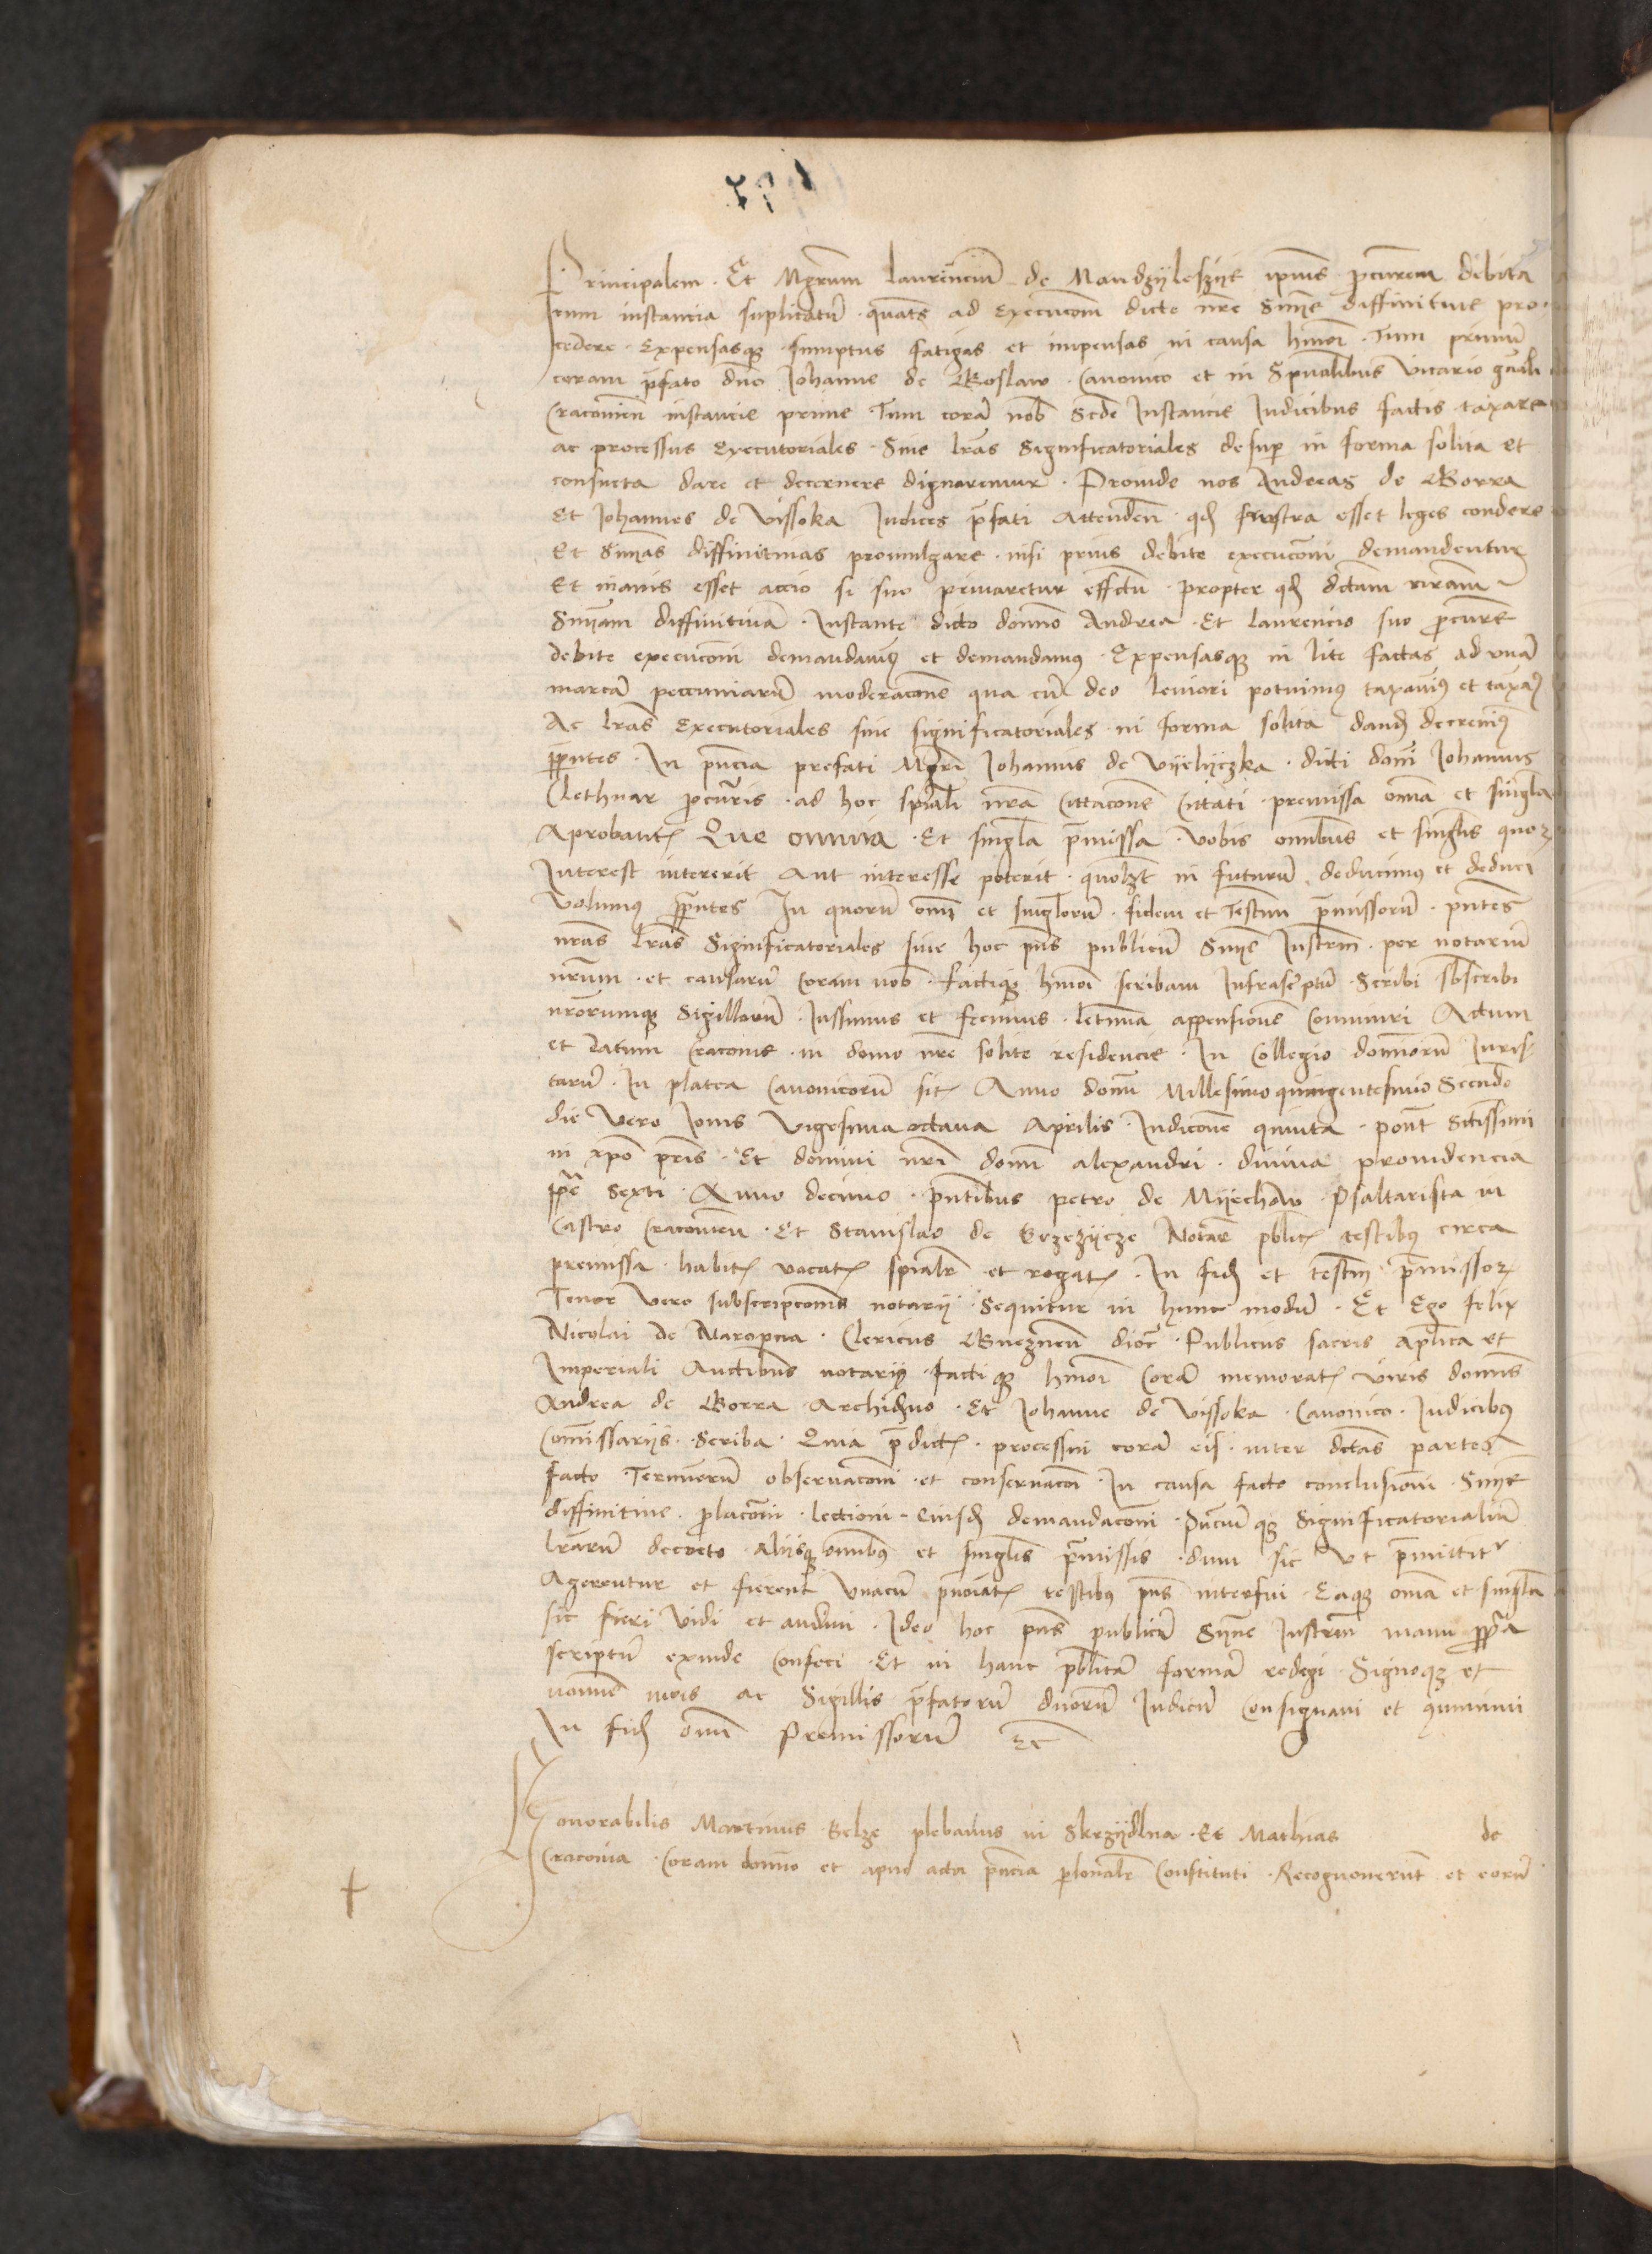 Principalem · Et Mgrum Laurencium de Mandzyleszye ipius pcurem debita
cum instancia suplicatum · quats ad execucom dicte nre Snie diffinitive pro-
cedere · Expensasque sumptus fatigas et impensas in causa hmoi · Tum primum
coram prefato dno Johanne de Goslaw Canonico et in Spualibus Vicario gnali
Cracovien instancie prime Tum cora nob Scde Instancie Iudicibus factis taxare
ac processus executoriales · Sive lras Significatoriales desup in forma solita et
consueta dare et decernere dignaremur · Proinde nos Andreas de Gorra
Et Johannes de Vissoka Iudices prefati Attenden qd frustra esset leges condere
Et Snias diffinitivas promulgare · nisi prius debite execuconi demandentur
Et inanis esset accio si suo privaretur effctu · propter qd dctam nram
Sniam diffinitivam · Instante dicto domno Andrea · Et Laurencio suo pcure
debite execuconi demandavimus et demandamus · Expensasque in lite factas ad una
marcam pecuniarum moderacone qua cum deo leviori potuimus taxavimus et taxam
Ac lras Executoriales sive significatoriales in forma solita dand decrevimus
pntes · In pncia prefati Mgri Johannis de Vyelyczka · dicti domi Johannis
Clethnar pcuris · ad hoc spiali nra Cittacone Cittati · premissa omia et singla
Aprobant Que omnia · Et singla premissa · Vobis omnibus et singlis quorum
Interest intererit Aut interesse poterit · quomolzt in futurum deducimus et deduci
Volumus pntes In quorum omi et singlorum · fidem et Testim premissorum · pntes
nras lras Significatoriales sive hoc pns publicum Snie Instrm · per notarium
nrum · et causarum Coram nob factique hmoi scribam Infrascptum · Scribi sbscribi
nrorumque Sigillorum · Iussimus et fecimus · appensione Communiri Actum
et datum Cracovie · in domo nre solite residencie · In Collegio domnorum Iuris-
tarum · In platea Canonicorum sit Anno domi Millesimo quingentesimo Secundo
die vero Iovis Vigesima octava Aprilis · Indicone quinta · pont Sctissimi
in xpo pris · Et domini nri domi alexandri · divina providencia
ppe Sexti · Anno decimo · pntibus petro de Myechow · Psaltarista in
Castro Cracovien · Et Stanislao de Brzezycze Notar pblic testibus circa
premissa · habit vocat spialr et rogat · In fid et testm premissor
Tenor vero subscripcois notarii · Sequitur in hunc modum · Et Ego Felix
Nicolai de Naropna · Clericus Gneznen dioc · Publicus sacris aplica et
Imperiali Auctibus notarius · facti que hmoi Cora memorat viris domis
Andrea de Gorra Archidno · Et Johanne de Vissoka · Canonico · Iudicibus
Commissariis · Scriba · Quia predict · processui cora eis · inter dctas partes
facto · Terminorum observaconi · et conservacoi · In causa facte conclusioni · Snie
diffinitive · prolaconi · lectioni · Eiusd demandaconi · que Significatorialium
lrarum decreto · Aliisque omnibus et singlis premissis · dum sic ut premittitur
Agerentur et fierent Unacum pnoiat testibus pns interfui · Eaque omia et singla
sic fieri vidi et audivi · Ideo hoc pns publicum Snie Instrm manu ppa
scriptum exinde Confeci · Et in hanc pblicam formam redegi · Signoque et
nomine meis ac Sigillis prefatorum duorum Iudicum Consignavi et communivi
In fid omi Premissorum Etc
Honorabilis Martinus Belze plebanus in Skrzydlna · Et Mathias de
Cracovia · Coram domno et apud acta pncia psonalr Constituti · Recognoverunt et eorum